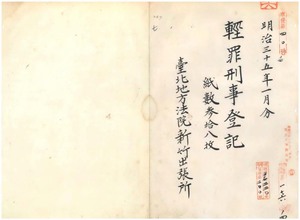 明治三十五年一月分
輕罪刑事登記
紙數參拾八枚
臺北地方法院新竹出張所